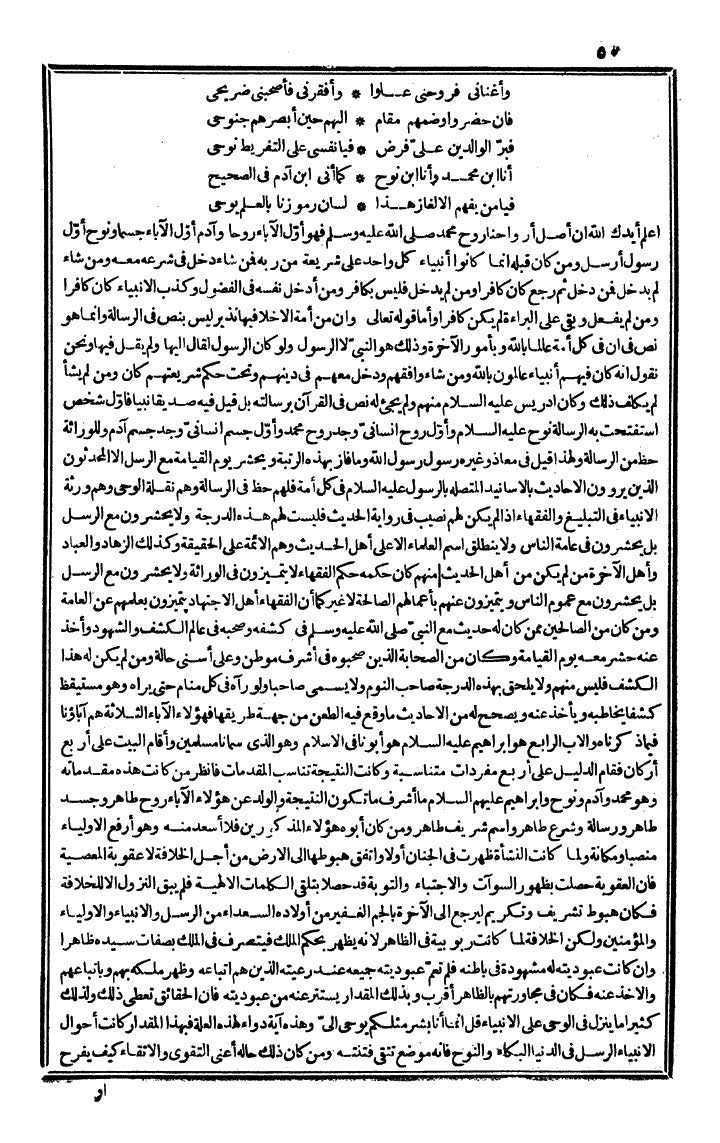 ٥٠
وأغنانى فروحنى عــلوا * وأفقرنى فأصحبنى ضريحى
فان حضر واوضمهم مقام * اليهم حين أبصرهم جنوحى
فبرّ الوالدين علىّ فرض * فيانفسى على التفريط نوحى
أنا ابن محمــد وأنا ابن نوح * كما أنى ابن آدم فى الصحيح
فيامن يفهم الالغاز هــذا * لسان رموزنا بالعلم يوحى
اعلم أيدك الله ان أصل أرواحنا روح محمد صلى الله عليه وسلم فهو أوّل الآباء روحا وآدم أوّل الآباء جسما ونوح أوّل
رسول أرسل ومن كان قبله انما كانوا أنبياء كل واحد على شريعة من ربه فمن شاء دخل فى شرعه معه ومن شاء
لم يدخل فمن دخل ثم رجع كان كافرا ومن لم يدخل فليس بكافر ومن أدخل نفسه فى الفضول وكذب الانبياء كان كافرا
ومن لم يفعل وبقى على البراءة لم يكن كافرا وأما قوله تعالى وان من أمة الاخلا فيها نذير ليس بنص فى الرسالة وانما هو
نص فى ان فى كل أمة عالما بالله و بأمور الآخرة وذلك هو النبىّ لا الرسول ولو كان الرسول لقال اليها ولم يقل فيها ونحن
نقول انه كان فيهم أنبياء عالمون بالله ومن شاء وافقهم ودخل معهم فى دينهم وتحت حكم شريعتهم كان ومن لم يشأ
لم يكلف ذلك وكان ادريس عليه السلام منهم ولم يجئ له نص فى القرآن برسالته بل قيل فيه صديقا نبيا فأوّل شخص
استفتحت به الرسالة نوح عليه السلام وأوّل روح انسانىّ وجد روح محمد وأوّل جسم انسانىّ وجد جسم آدم وللوراثة
حظ من الرسالة ولهذا قيل فى معاذ وغيره رسول رسول الله وما فاز بهذه الرتبة ويحشر يوم القيامة مع الرسل الا المحدثون
الذين يروون الاحاديث بالاسانيد المتصله بالرسول عليه السلام فى كل أمة فلهم حظ فى الرسالة وهم نقلة الوحى وهم ورثة
الانبياء فى التبليغ والفقهاء اذا لم يكن لهم نصيب فى رواية الحديث فليست لهم هــذه الدرجة ولا يحشرون مع الرسل
بل يحشرون فى عامة الناس ولا ينطلق اسم العلماء الا على أهل الحــديث وهم الائمة على الحقيقة وكذلك الزهاد والعباد
وأهل الآخرة من لم يكن من أهل الحديث منهم كان حكمه حكم الفقهاء لا يتميزون فى الوراثة ولا يحشرون مع الرسل
بل يحشرون مع عموم الناس و يتميزون عنهم بأعمالهم الصالحة لا غير كما أن الفقهاء أهل الاجتهاد يتميزون بعلمهم عن العامة
ومن كان من الصالحين ممن كان له حديث مع النبىّ صلى الله عليه وسلم فى كشفه وصحبه فى عالم الكشف والشهود وأخذ
عنه حشر معــه يوم القيامة وكان من الصحابة الذين صحبوه فى أشرف موطن وعلى أسنى حالة ومن لم يكن له هذا
الكشف فليس منهم ولا يلحق بهذه الدرجة صاحب النوم ولا يسمى صاحبا ولو رآه فى كل منام حتى يراه وهو مستيقظ
كشفا يخاطبه و يأخذ عنه و يصحح له من الاحاديث ما وقع فيه الطعن من جهــة طريقها فهؤلاء الآباء الثــلاثة هم آباؤنا
فيما ذكرناه والاب الرابع هو ابراهيم عليه السلام هو أبونا فى الاسلام وهو الذى سمانا مسلمين وأقام البيت على أربع
أركان فقام الدليل على أربع مفردات متناسبة وكانت النتيجة تناسب المقدمات فانظر من كانت هذه مقدماته
وهو محمد وآدم ونوح وابراهيم عليهم السلام ما أشرف ما تكون النتيجة والولد عن هؤلاء الآباء روح طاهر وجسد
طاهر ورسالة وشرع طاهر واسم شريف طاهر ومن كان أبوه هؤلاء المذكورين فلا أسعد منــه وهو أرفع الاولياء
منصبا ومكانة ولما كانت النشأة ظهرت فى الجنان أولا واتفق هبوطها الى الارض من أجل الخلافة لا عقوبة المعصية
فان العقوبة حصلت بظهور السوآت والاجتباء والتوبة قد حصلا بتلقى الكلمات الالهية فلم يبق النزول الا للخلافة
فكان هبوط تشريف وتكريم ليرجع الى الآخرة بالجم الغفير من أولاده السعداء من الرسل والانبياء والاولياء
والمؤمنين ولكن الخلافة لما كانت ربوبية فى الظاهر لانه يظهر بحكم الملك فيتصرف فى الملك بصفات سيده ظاهرا
وان كانت عبوديته له مشهودة فى باطنه فلم تعمّ عبوديته جميعه عند رعيته الذين هم اتباعه وظهر ملكه بهم وباتباعهم
والاخذ عنه فكان فى مجاورتهم بالظاهر أقرب و بذلك المقدار يستتر عنه من عبوديته فان الحقائق تعطى ذلك ولذلك
كثيرا ما ينزل فى الوحى على الانبياء قل انما أنا بشر مثلكم يوحى الىّ وهذه آية دواء لهذه العلة فبهذا المقدار كانت أحوال
الانبياء الرسل فى الدنيا البكاء والنوح فانه موضع تتقى فتنته ومن كان ذلك حاله أعنى التقوى والاتقاء كيف يفرح
او